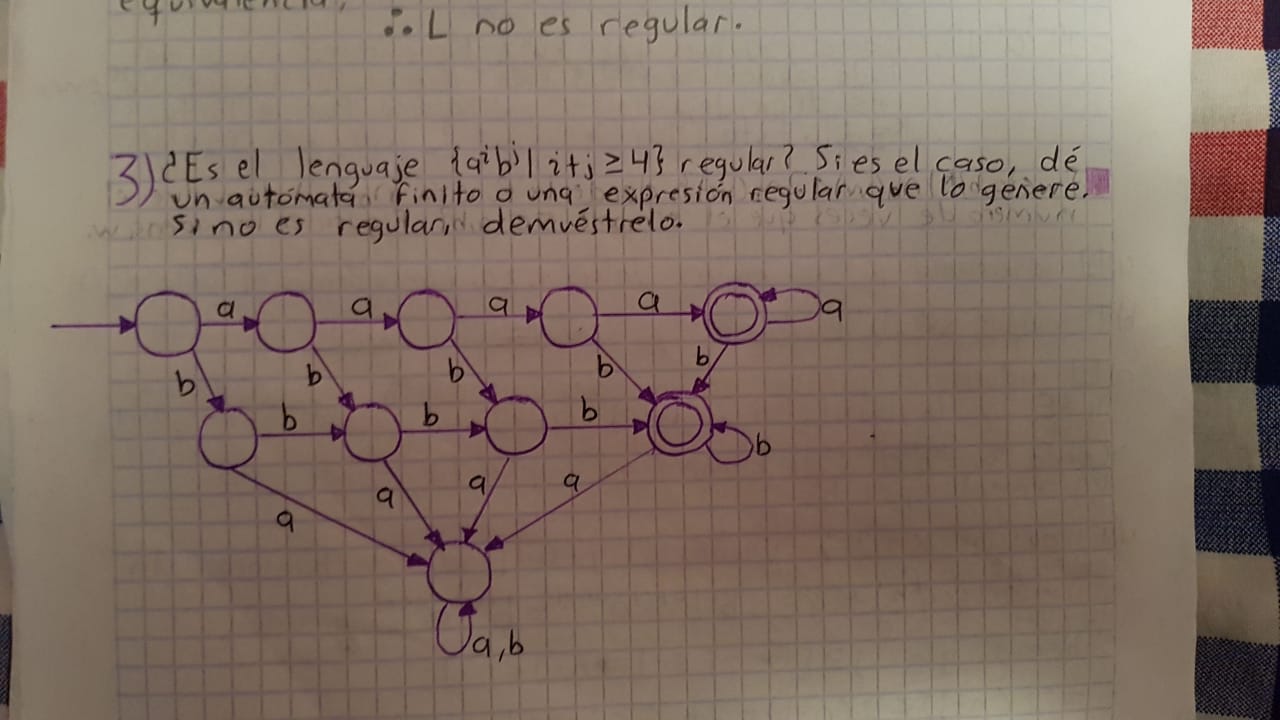 equivalencia,
∴ L no es regular.
3) ¿Es el lenguaje {aⁱbʲ | i+j ≥ 4} regular? Si es el caso, dé
un autómata finito o una expresión regular que lo genere.
Si no es regular, demuéstrelo.
a a a a a
b b b b b
b b b b
a a a a
a,b